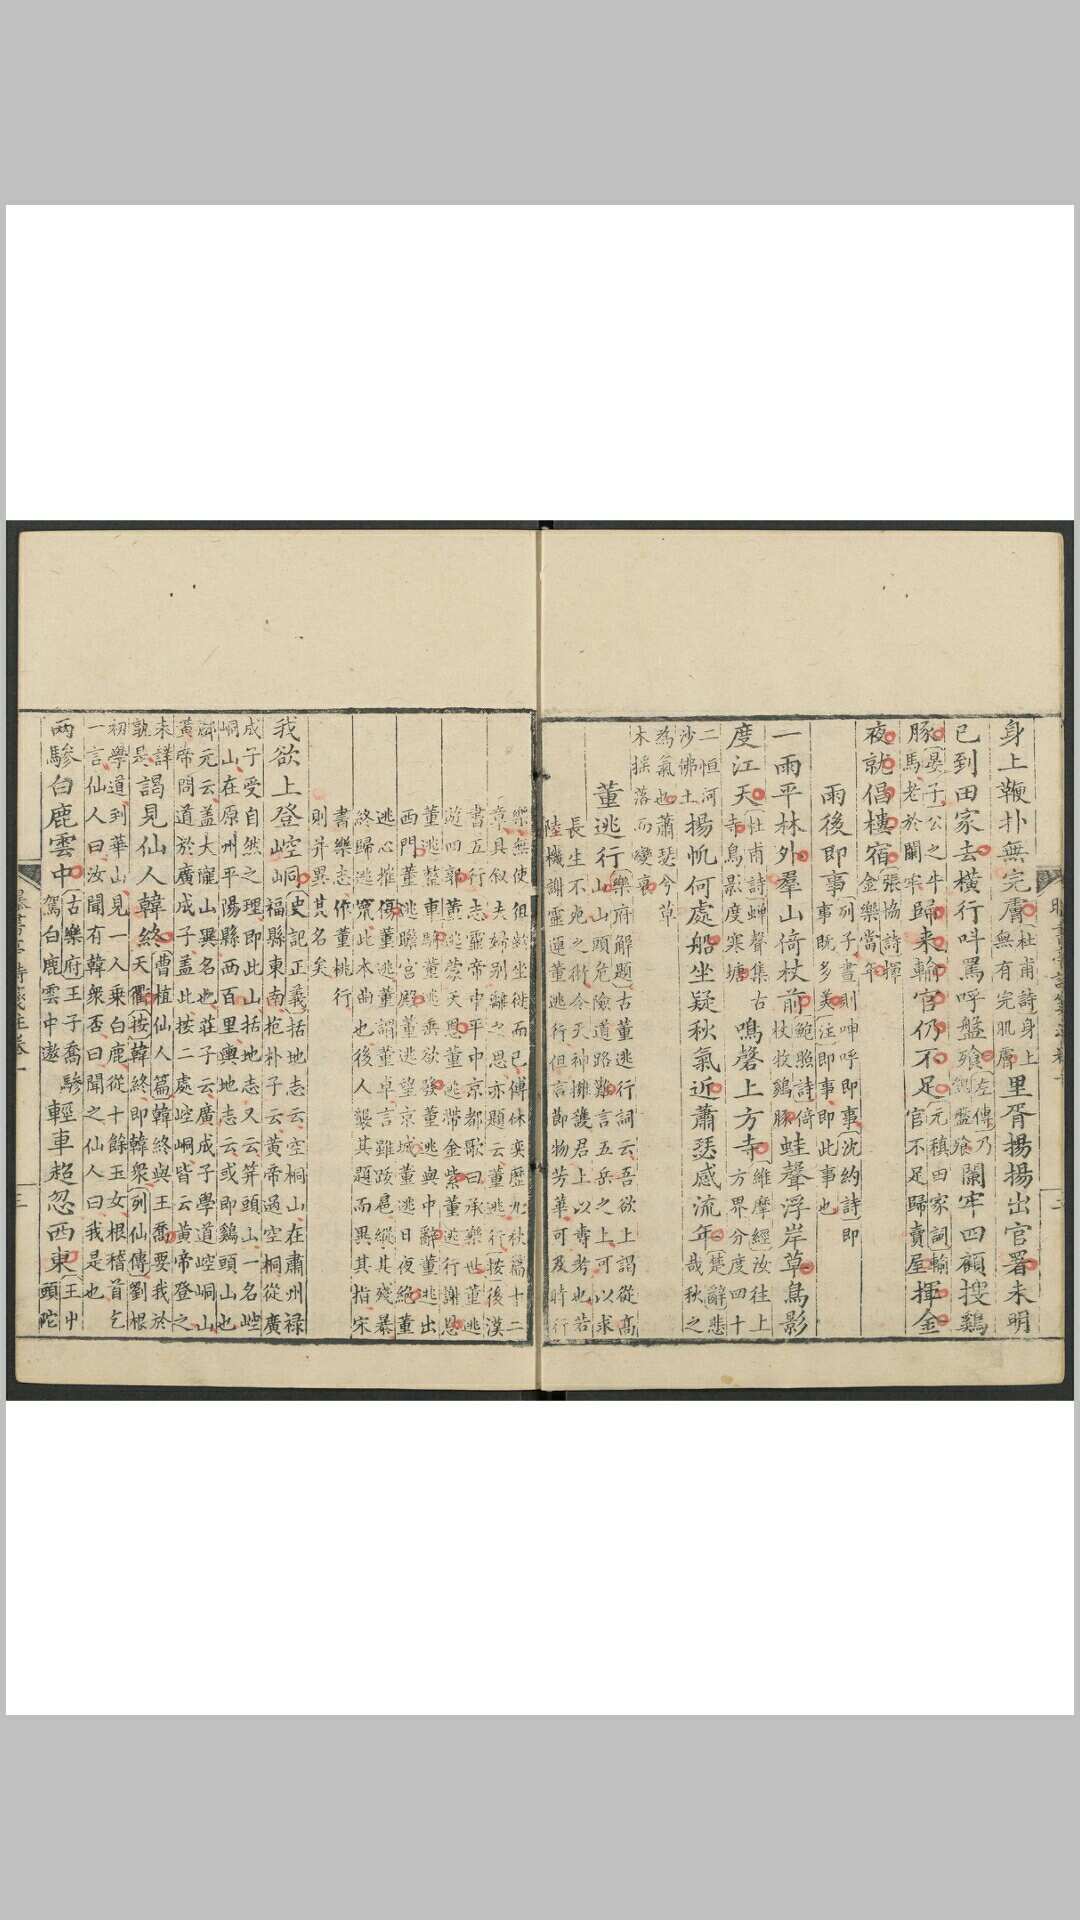 身上鞭扑無完膚杜甫詩身上無有完肌膚里胥揚揚出官署未明
已到田家去橫行叫罵呼盤飱左傳乃饋盤飱闌牢四顧搜鷄
豚晏子公之牛馬老於闌牢歸来輸官仍不足元稹田家詞輸官不足歸賣屋揮金
夜就倡樓宿張協詩揮金樂當年
雨後即事列子晝則呻呼即事沈約詩即事既多美注即事即此事也
一雨平林外羣山倚杖前鮑照詩倚杖牧鷄豚蛙聲浮岸草鳥影
度江天杜甫詩蝉聲集古寺鳥影度寒塘鳴磬上方寺維摩經汝往上方界分度四十
二恒河沙佛土揚帆何處船坐疑秋氣近蕭瑟感流年楚辭悲哉秋之
為氣也蕭瑟兮草木揺落而變衰
董逃行樂府解題古董逃行詞云吾欲上謁從高山山頭危險道路難言五岳之上可以求
長生不死之術令天神擁護君上以壽考也若陸機謝靈運董逃行但言節物芳華可及時行
樂無使徂齡坐徙而已傅休奕歷九秋篇十二章具叙夫婦別離之思亦題云董逃行按後漢
書五行志靈帝中平中京都歌曰承樂世董逃遊四郭董逃蒙天恩董逃帶金紫董逃行謝恩
董逃整車騎董逃垂欲發董逃與中辭董逃出西門董逃瞻宮殿董逃望京城董逃日夜絕董
逃心摧傷董逃謂董卓言雖跋扈縱其殘暴終歸逃竄此本曲也後人襲其題而異其指宋
書樂志作董桃行則并異其名矣
我欲上登崆峒史記正義括地志云空桐山在肅州禄福縣東南抱朴子云黄帝過空桐從廣
成子受自然之理即此山括地志又云笄頭山一名崆峒山在原州平陽縣西百里輿地志云或即鷄頭山也
酈元云盖大隴山異名也莊子云廣成子學道崆峒山黄帝問道於廣成子盖此按二處崆峒皆云黄帝登之
未詳孰是謁見仙人韓終曹植仙人篇韓終與王喬要我於天衢按韓終即韓衆列仙傳劉根
初學道到華山見一人乗白鹿從十餘玉女根稽首乞一言仙人曰汝聞有韓衆否曰聞之仙人曰我是也
两驂白鹿雲中古樂府王子喬驂駕白鹿雲中遨輕車超忽西東王屮頭陀